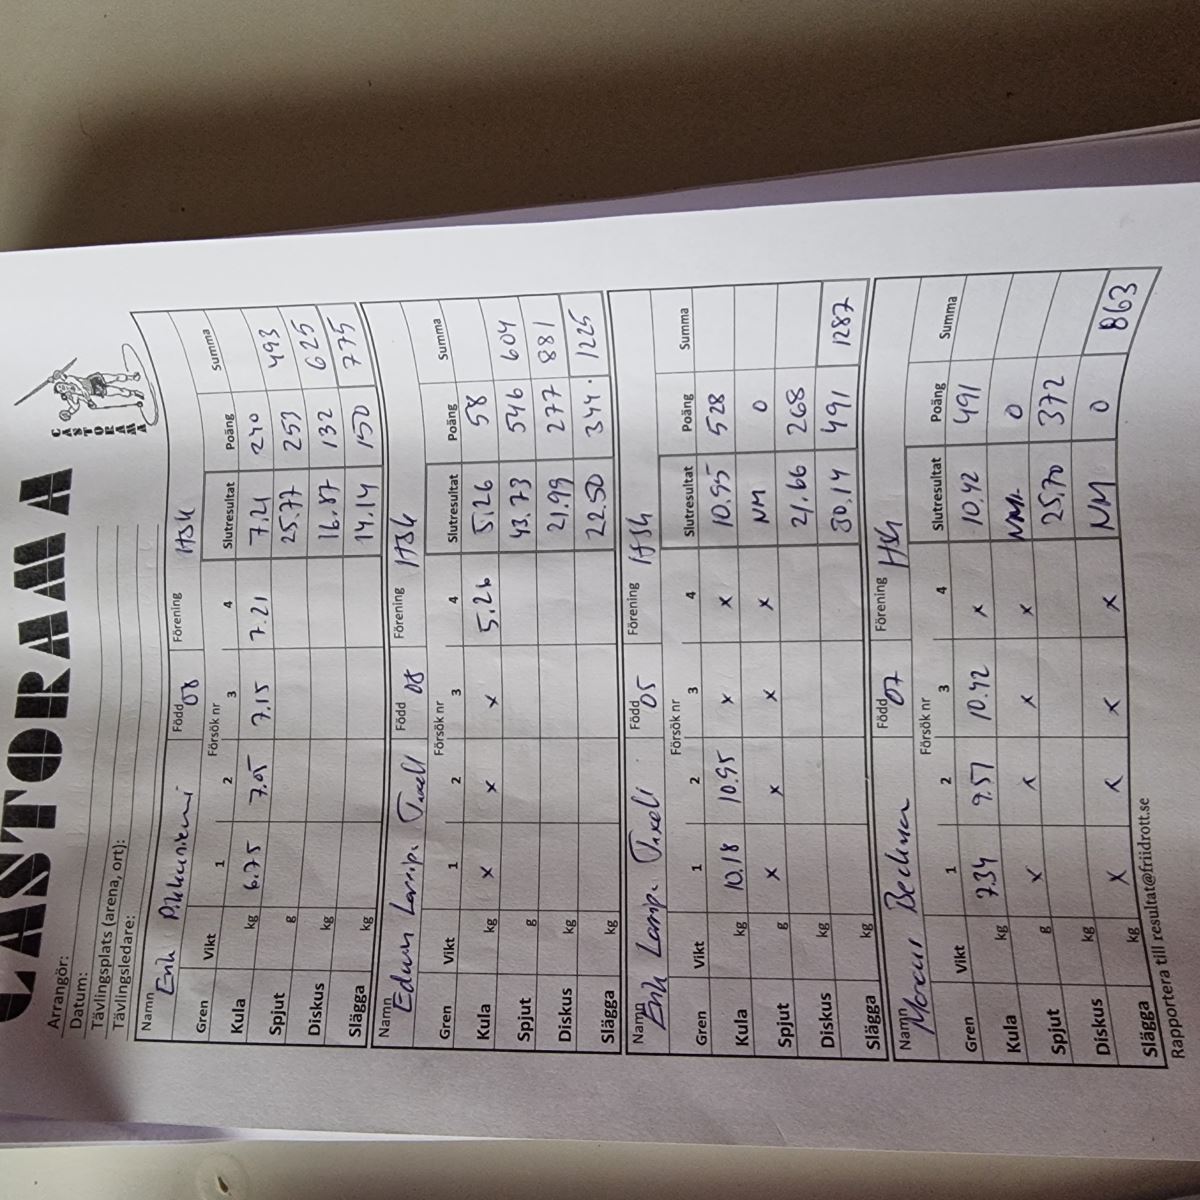 CASTORAMA
CASTORAMA
Arrangör:
Datum:
Tävlingsplats (arena, ort):
Tävlingsledare:
Namn Född Förening
Erik Pikkuniemi 08 HSK
Gren Vikt Försök nr
1 2 3 4 Slutresultat Poäng Summa
Kula kg 6.75 7.05 7.15 7.21 7.21 240
Spjut g 25.77 253 493
Diskus kg 16.87 132 625
Slägga kg 14.14 150 775
Namn Född Förening
08 HSK
Gren Vikt Försök nr
1 2 3 4 Slutresultat Poäng Summa
Kula kg x x x 5.26 5.26 58
Spjut g 43.73 546 604
Diskus kg 21.99 277 881
Slägga kg 22.50 344. 1225
Namn Född Förening
Erik 05 HSK
Gren Vikt Försök nr
1 2 3 4 Slutresultat Poäng Summa
Kula kg 10.18 10.95 x x 10.95 528
Spjut g x x x x NM 0
Diskus kg 21.66 268
Slägga kg 30.14 491 1287
Namn Född Förening
Beckman 07
Gren Vikt Försök nr
1 2 3 4 Slutresultat Poäng Summa
Kula kg 7.34 9.57 10.42 x 10.42 491
Spjut g x x x x NM. 0
Diskus kg 25.70 372
Slägga kg x x x x NM 0 863
Rapportera till resultat@friidrott.se